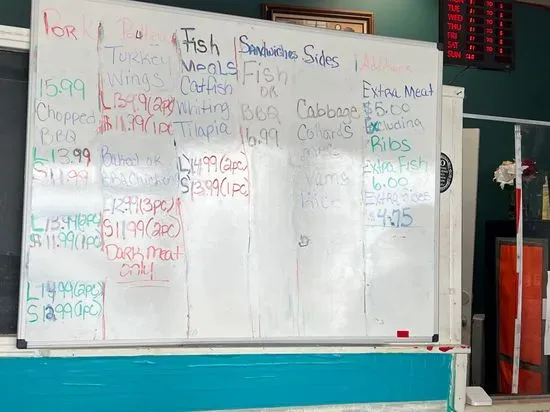 Pork
15.99
Chopped
BBQ
L 13.99
S 11.99
L 13.99 (2pc)
S 11.99 (1pc)
L 14.99 (2pc)
S 12.99 (1pc)
Turkey
Wings
L 13.99 (2pc)
S 11.99 (1pc)
Baked or
BBQ Chicken
12.99 (3pc)
S 11.99 (2pc)
Dark meat
only!
Fish
Meals
Catfish
Whiting
Tilapia
L 14.99 (2pc)
S 13.99 (1pc)
Sandwiches
Fish
or
BBQ
6.99
Sides
Cabbage
Collards
Yams
Extra Meat
$5.00
Excluding
Ribs
Extra Fish
6.00
Extra Sides
$4.75
TUE
WED
THU
FRI
SAT
SUN